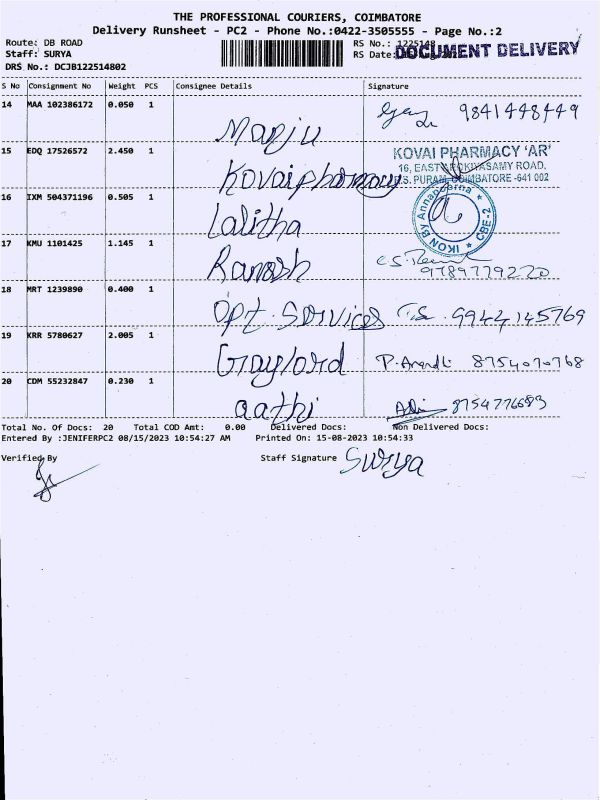 THE PROFESSIONAL COURIERS, COIMBATORE
Delivery Runsheet - PC2 - Phone No.:0422-3505555 - Page No.:2
Route: DB ROAD
RS No.:
Staff: SURYA
RS Date:
DOCUMENT DELIVERY
DRS No.: DCJB122514802
S No Consignment No Weight PCS Consignee Details Signature
14 MAA 102386172 0.050 1 Manju 9841448449
15 EDQ 17526572 2.450 1 Kovaipharmacy
KOVAI PHARMACY 'AR'
16, EAST AROKIYASAMY ROAD,
R.S. PURAM, COIMBATORE -641 002
16 IXM 504371196 0.505 1 Lalitha
IKON By Annapoorna * CBE-2 *
17 KMU 1101425 1.145 1 Ramesh 9789779220
18 MRT 1239890 0.400 1 Opt. Services 9944145769
19 KRR 5780627 2.005 1 Gaylord P. Anandh 8754070768
20 CDM 55232847 0.230 1 aathi 8754776683
Total No. Of Docs: 20 Total COD Amt: 0.00 Delivered Docs: Non Delivered Docs:
Entered By :JENIFERPC2 08/15/2023 10:54:27 AM Printed On: 15-08-2023 10:54:33
Verified By Staff Signature Surya